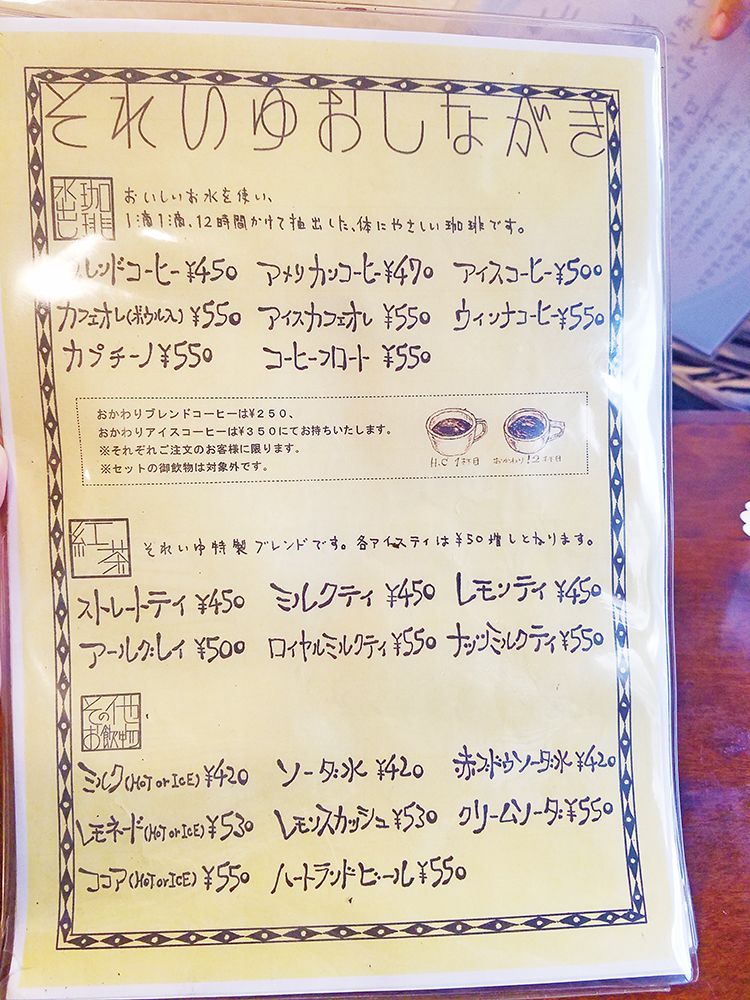 それいゆおしながき
水出し珈琲
おいしいお水を使い、
1滴1滴、12時間かけて抽出した、体にやさしい珈琲です。
ブレンドコーヒー¥450 アメリカンコーヒー¥470 アイスコーヒー¥500
カフェオレ(ボウル入)¥550 アイスカフェオレ ¥550 ウィンナコーヒー¥550
カプチーノ¥550 コーヒーフロート ¥550
おかわりブレンドコーヒーは¥250、
おかわりアイスコーヒーは¥350にてお持ちいたします。
※それぞれご注文のお客様に限ります。
※セットの御飲物は対象外です。
H.C 1杯目 おかわり!2杯目
紅茶
それいゆ特製ブレンドです。各アイスティは¥50増しとなります。
ストレートティ ¥450 ミルクティ ¥450 レモンティ ¥450
アールグレイ ¥500 ロイヤルミルクティ ¥550 ナッツミルクティ ¥550
その他お飲物
ミルク(HOT or ICE) ¥420 ソーダ水 ¥420 赤ブドウソーダ水 ¥420
レモネード(HOT or ICE) ¥530 レモンスカッシュ ¥530 クリームソーダ ¥550
ココア(HOT or ICE) ¥550 ハートランドビール ¥550